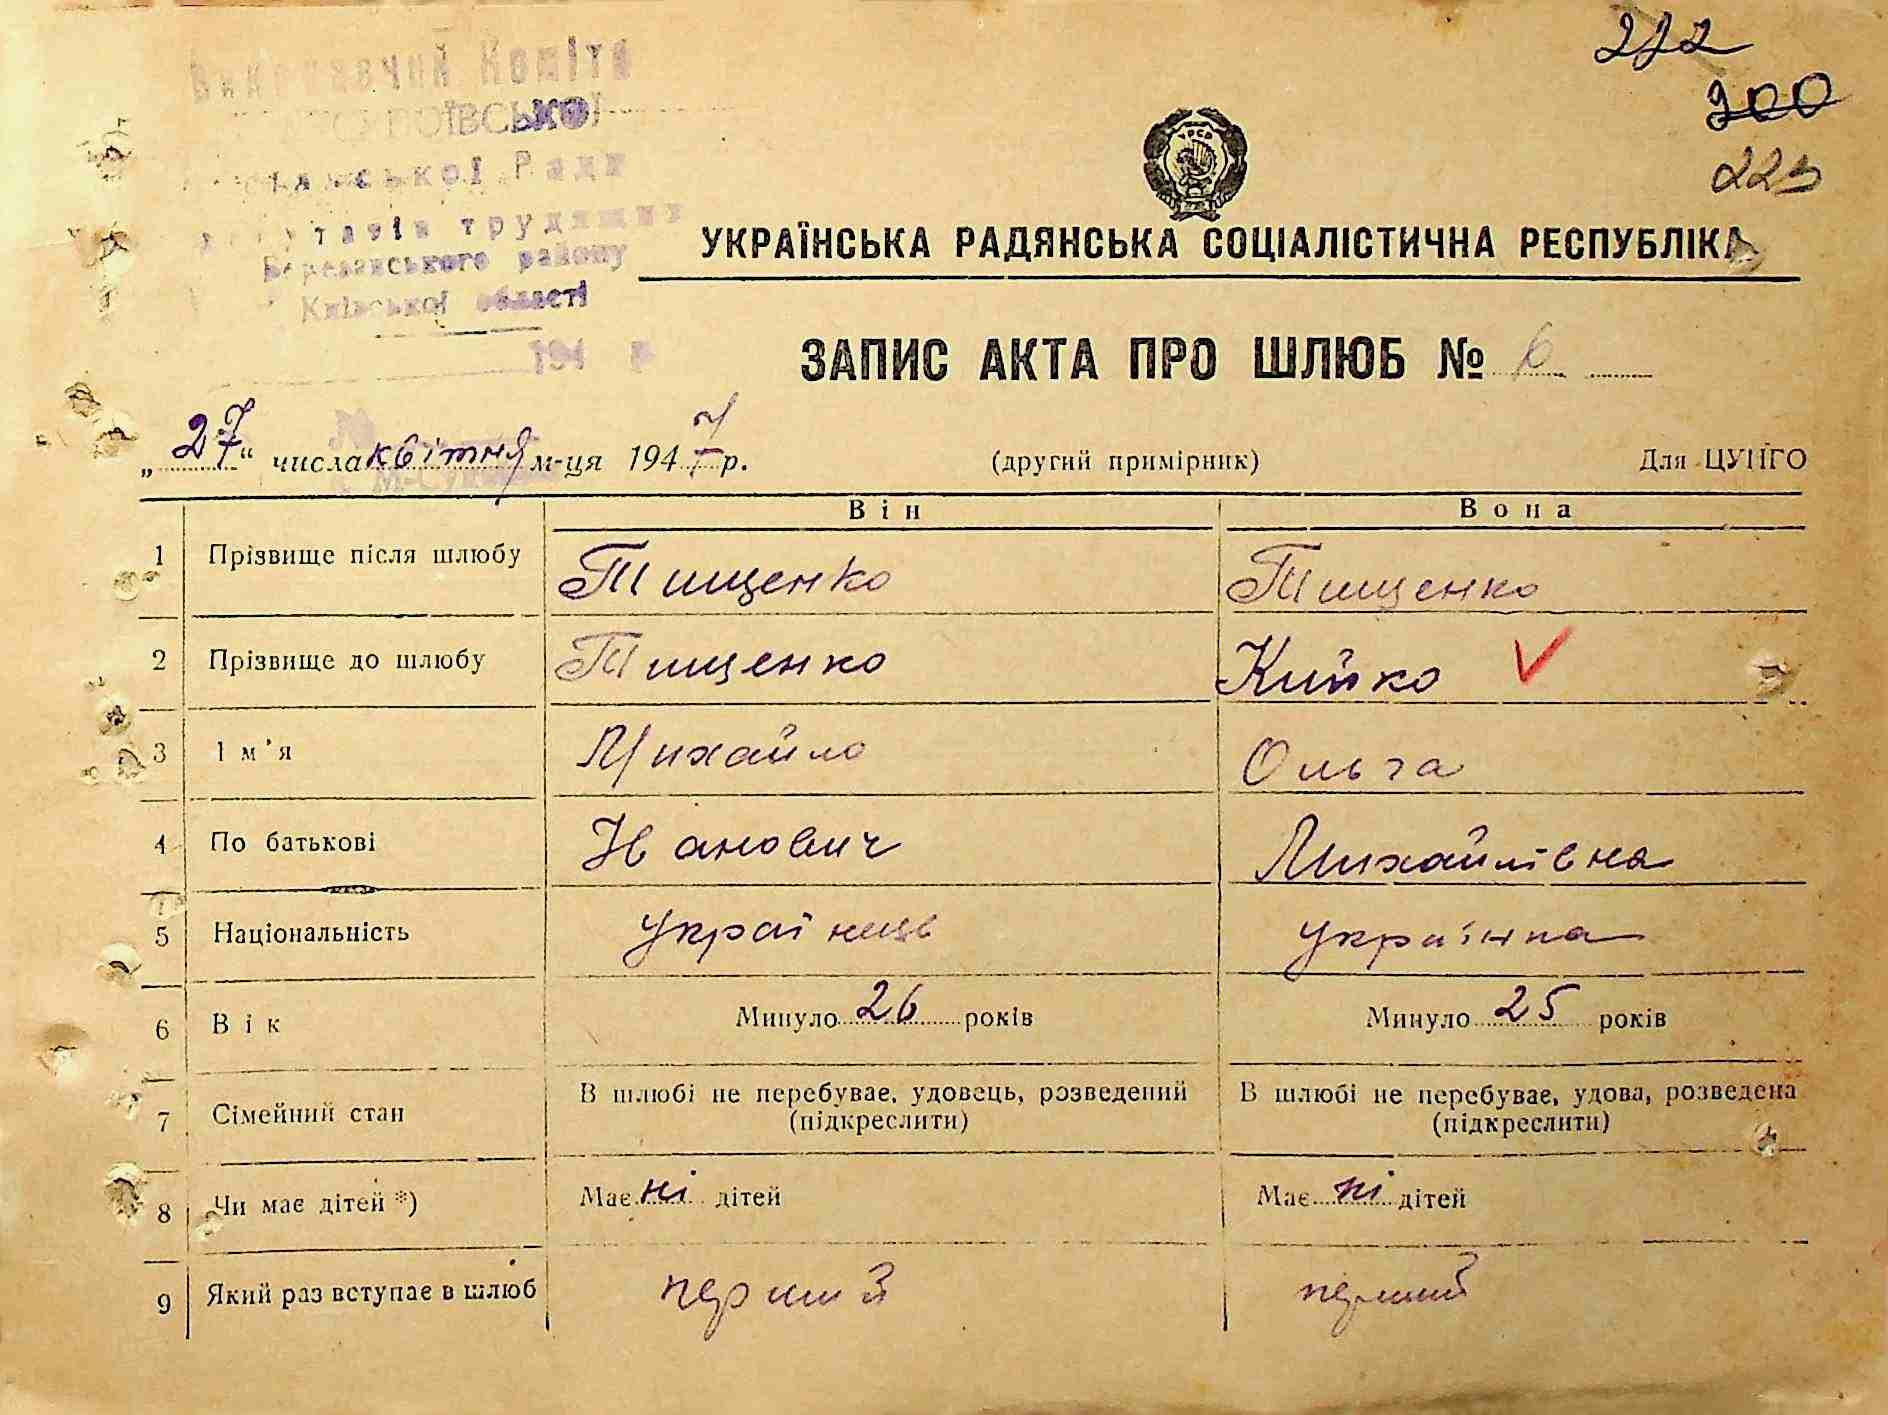 Виконавчий Коміте
Ради
трудящих
Березанського району
Київської області
194 р
222
200
УРСР
УКРАЇНСЬКА РАДЯНСЬКА СОЦІАЛІСТИЧНА РЕСПУБЛІКА
ЗАПИС АКТА ПРО ШЛЮБ № 6
„27" числа квітня м-ця 1947 р. (другий примірник) Для ЦУНГО
Він Вона
1 Прізвище після шлюбу Тищенко Тищенко
2 Прізвище до шлюбу Тищенко Кийко
3 Ім'я Михайло Ольга
4 По батькові Іванович Михайлівна
5 Національність Українець Українка
6 Вік Минуло 26 років Минуло 25 років
7 Сімейний стан В шлюбі не перебуває, удовець, розведений (підкреслити) В шлюбі не перебуває, удова, розведена (підкреслити)
8 Чи має дітей *) Має ні дітей Має ні дітей
9 Який раз вступає в шлюб перший перший